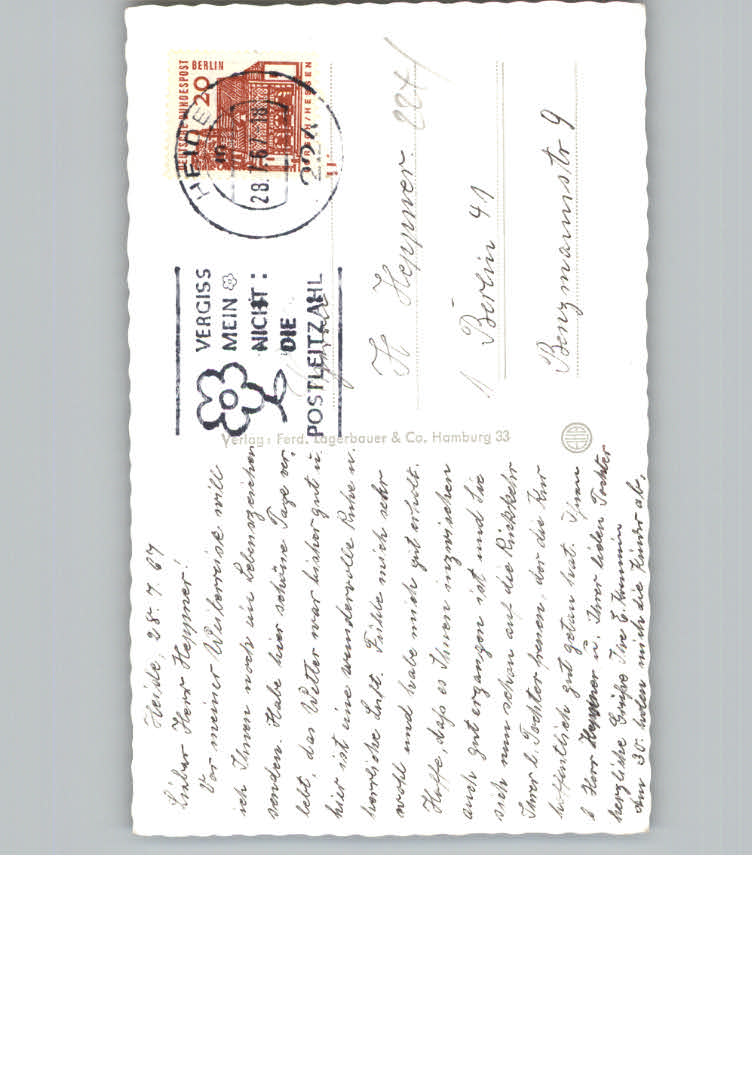 Heide, 28. 7. 67
Lieber Herr Heppner!
Vor meiner Weiterreise will
ich Ihnen noch ein Lebenszeichen
senden. Habe hier schöne Tage ver,
lebt, das Wetter war bisher gut u.
hier ist eine wundervolle Ruhe u.
herrliche Luft. Fühle mich sehr
wohl und habe mich gut erholt.
Hoffe, daß es Ihnen inzwischen
auch gut ergangen ist und Sie
sich nun schon auf die Rückkehr
Ihrer l. Tochter freuen, der die Kur
hoffentlich gut getan hat. Ihnen
l Herr Heppner u. Ihrer lieben Tochter
herzliche Grüße Ihre E.
Am 30. holen mich die Kinder ab.
DEUTSCHE BUNDESPOST
BERLIN
20
LORSCH/HESSEN
HEIDE
28. 7. 67 - 18
224
VERGISS
MEIN
NICHT:
DIE
POSTLEITZAHL
H Heppner
1 Berlin 41
Benzmannstr 9
Verlag: Ferd. Lagerbauer & Co. Hamburg 33